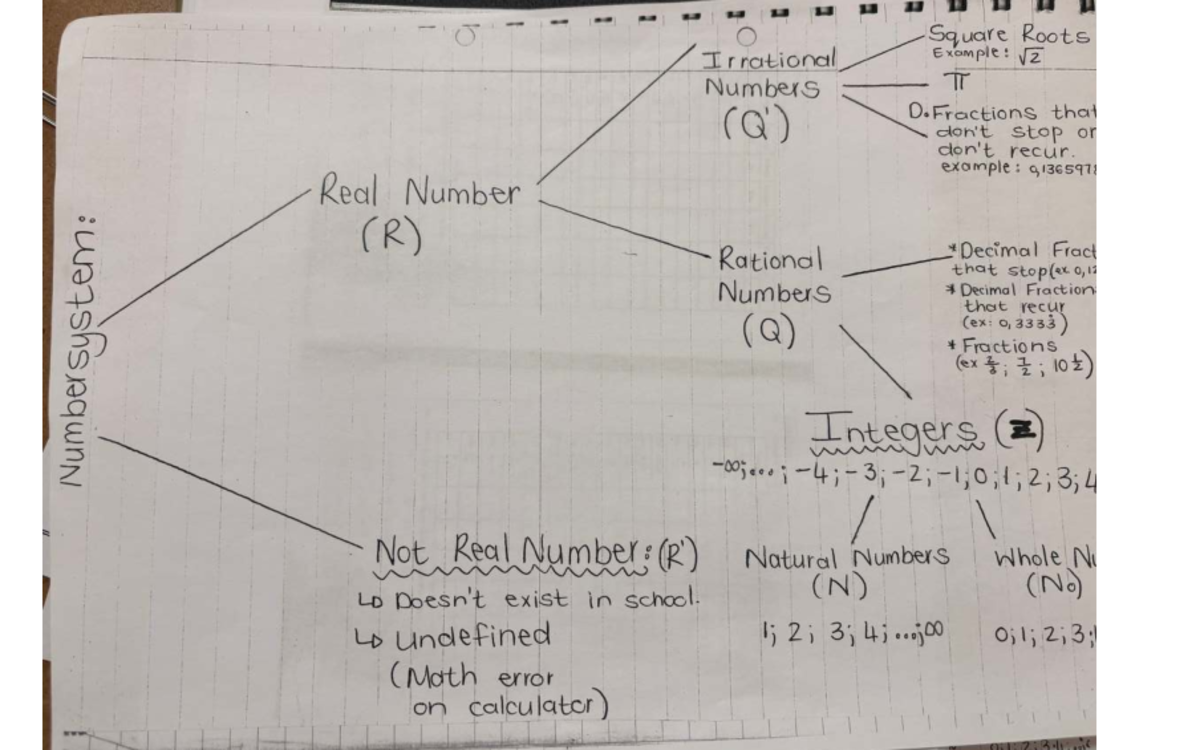 Numbersystem:
Real Number
(R)
Irrational
Numbers
(Q')
Square Roots
Example: √2
π
D.Fractions that
don't stop or
don't recur.
example: 0,136597
Rational
Numbers
(Q)
*Decimal Fract
that stop(ex 0,12
*Decimal Fraction
that recur
(ex: 0,333̇)
*Fractions
(ex 2/3; 7/2; 10 1/2)
Integers (Z)
-∞;...; -4; -3; -2; -1; 0; 1; 2; 3; 4
Natural Numbers
(N)
1; 2; 3; 4; ...; ∞
Whole Nu
(N₀)
0; 1; 2; 3;
Not Real Number: (R')
↳ Doesn't exist in school.
↳ undefined
(Math error
on calculator)